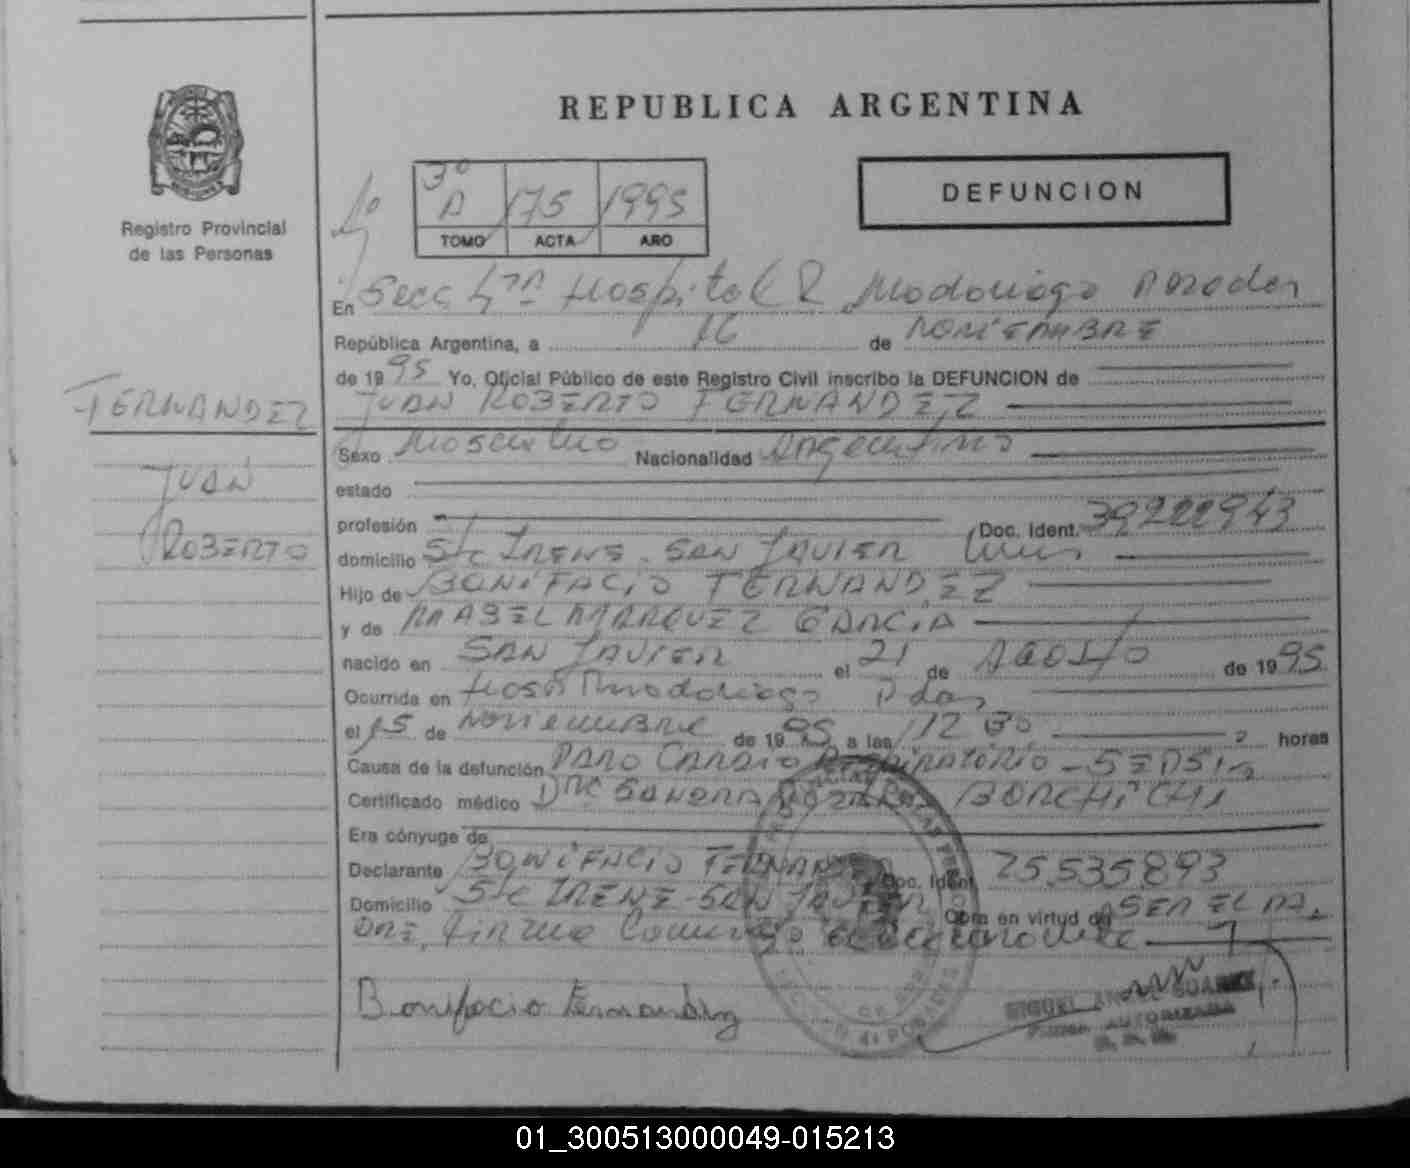 REPUBLICA ARGENTINA
Registro Provincial
de las Personas
3º
A 175 1995
TOMO ACTA AÑO
DEFUNCION
En Secc 4ta Hospital R Madariaga Posadas
República Argentina, a 16 de NOVIEMBRE
de 1995 Yo, Oficial Público de este Registro Civil inscribo la DEFUNCION de
JUAN ROBERTO FERNANDEZ
FERNANDEZ
JUAN
ROBERTO
Sexo Masculino Nacionalidad Argentino
estado
profesión Doc. Ident. 39222943
domicilio S/c IRENE - SAN JAVIER
Hijo de BONIFACIO FERNANDEZ
y de MABEL MARQUEZ GARCIA
nacido en SAN JAVIER el 21 de AGOSTO de 1995
Ocurrida en Hosp Madariaga Pdas
el 15 de NOVIEMBRE de 1995 a las 12 30 horas
Causa de la defunción PARO CARDIO RESPIRATORIO - SEPSIS
Certificado médico DRA SANDRA BORCHICHI
Era cónyuge de
Declarante BONIFACIO FERNANDEZ Doc. Ident. 25.535.893
Domicilio S/c IRENE - SAN JAVIER Obra en virtud de SER EL PA-
DRE, Firma Conmigo el declarante
Bonifacio Fernandez
MIGUEL ANGEL SUAREZ
FIRMA AUTORIZADA
01_300513000049-015213